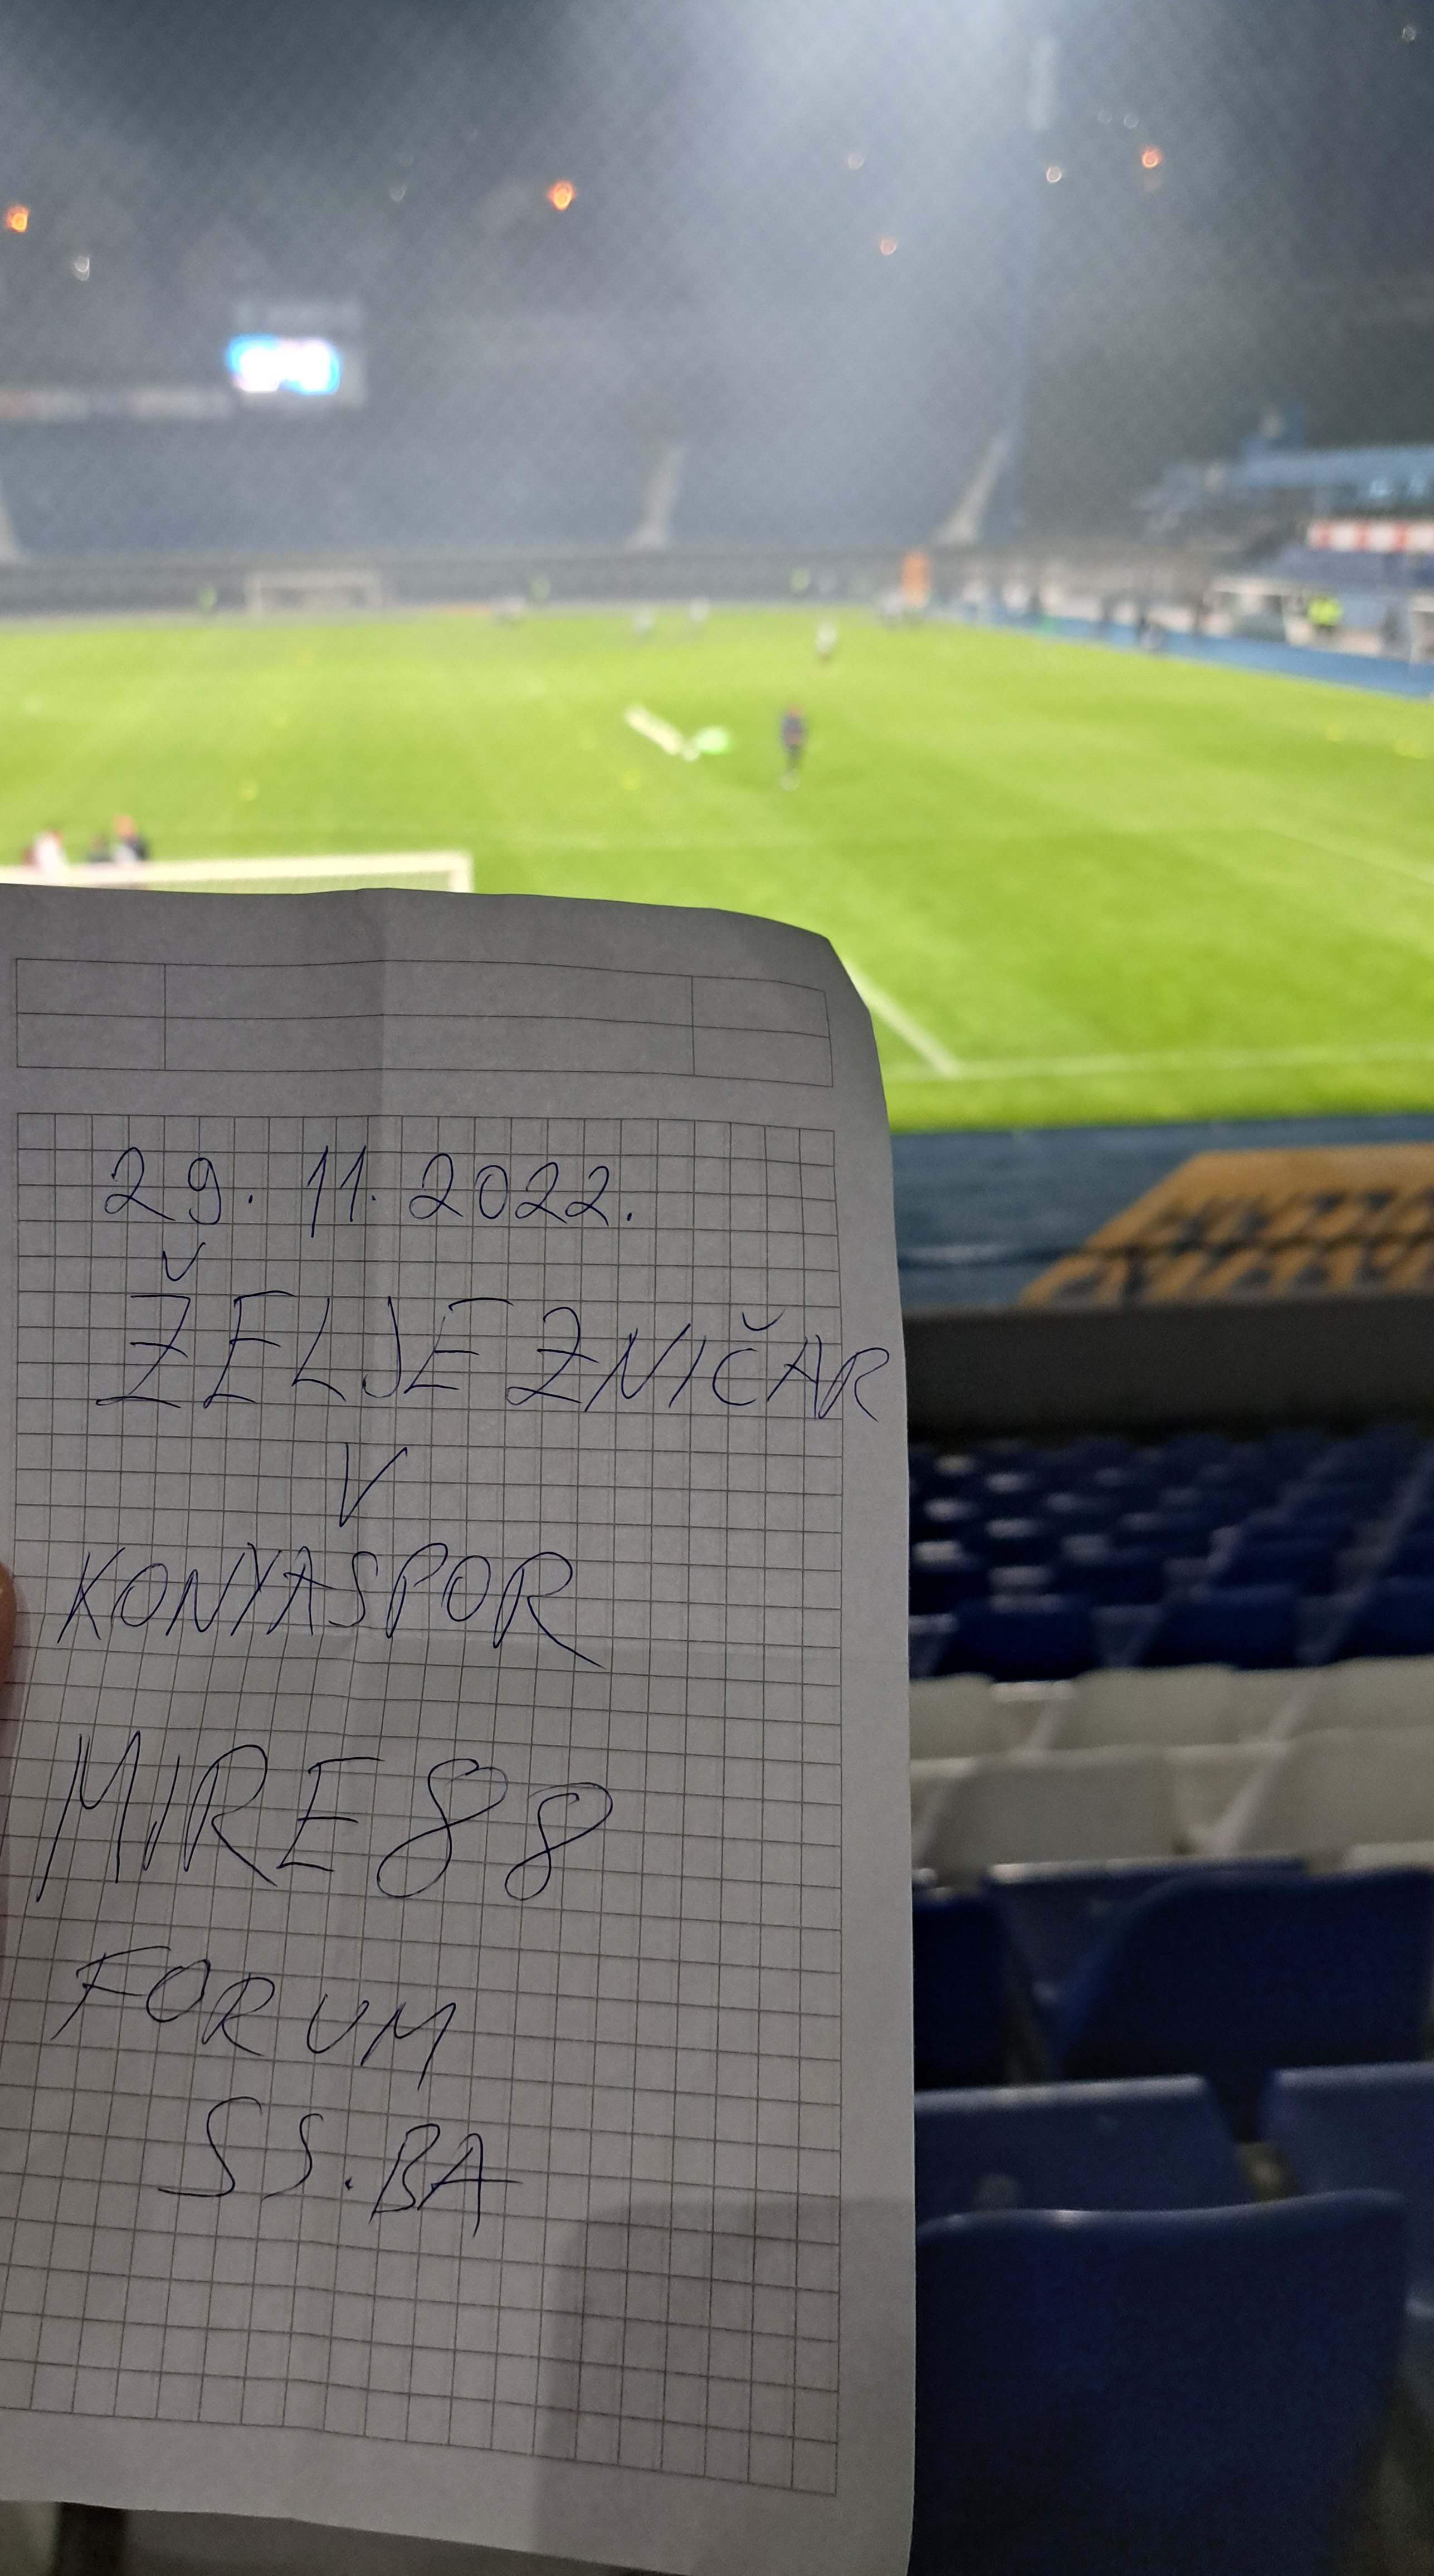 29.11.2022.
ŽELJEZNIČAR
V
KONYASPOR
MIRE88
FORUM
SS.BA